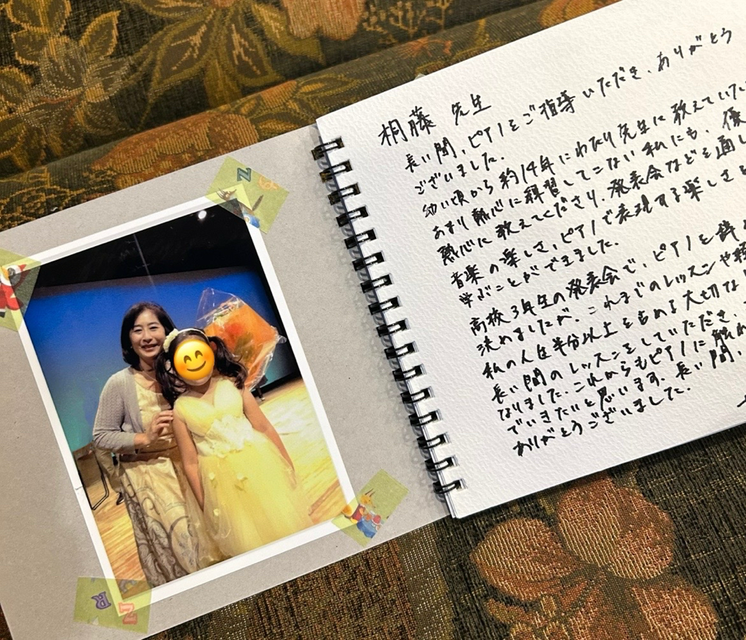 桐藤 先生
長い間、ピアノをご指導いただき、ありがとう
ございました。
幼い頃から約14年にわたり先生に教えていた
あまり熱心に練習してこない私にも、優
熱心に教えてくださり、発表会などを通し
音楽の楽しさ、ピアノで表現する楽しさを
学ぶことができました。
高校3年生の発表会で、ピアノを辞
決めましたが、これまでのレッスンや
私の人生半分以上を占める大切な
長い間のレッスンをしていただき、
なりました。これからもピアノに触れ
でいきたいと思います。長い間、
ありがとうございました。